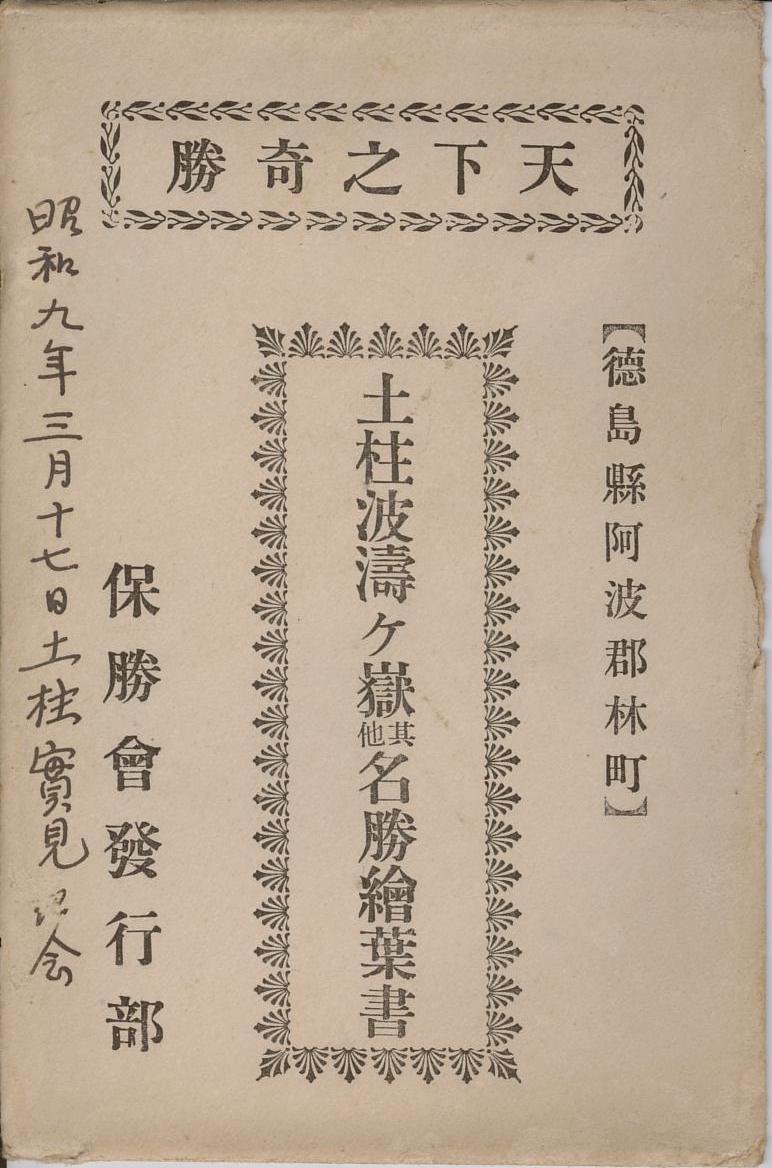 天下之奇勝
【德島縣阿波郡林町】
土柱波濤ケ嶽其他名勝繪葉書
保勝會發行部
昭和九年三月十七日土柱實見 会